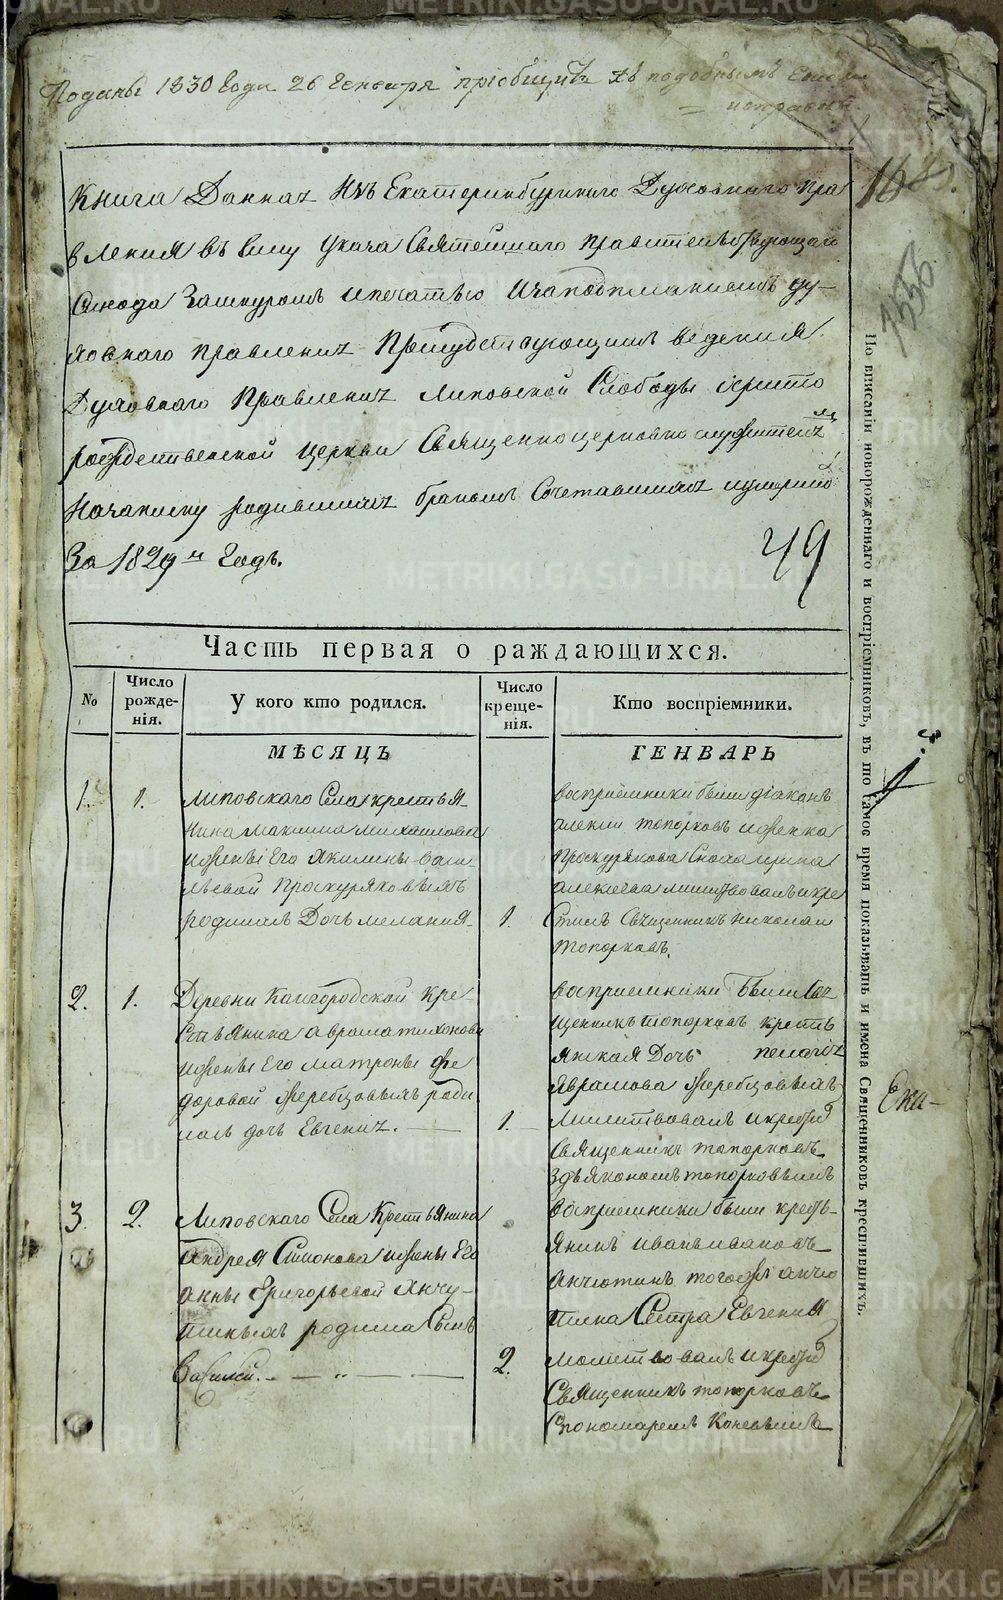 Поданы 1830 Года 26 Генваря пріобщить къ подобнымъ
Книга Данная Изъ Екатеринбургскаго Духовнаго Пра
вления въ Силу Указа Святейшаго Правительствующаго
Синода Зашнуромъ ипечатью Изаподписаниемъ ду-
ховнаго правления Присудствующимъ ведения
Духовнаго Правления Липовской Слободы Христо
рождественской церкви Священноцерковно служителямъ
Назаписку родившихся бракомъ Сочетавшихся
За 1829й Годъ.
49
Часть первая о раждающихся.
№
Число рожде- нія.
У кого кто родился.
Число креще- нія.
Кто воспріемники.
МѢСЯЦЪ
ГЕНВАРЬ
1. 1.
Липовскаго Села крестья
нина Максима Михаилова
ижены Его Акилины Васи
льевой Проскуряковыхъ
родилась Дочь Мелания
1.
восприемники были діаконъ
алексии топорковъ иженка
Проскурякова Ирина
алексеева молитвовалъ икре
стилъ Священникъ Николаи
топорковъ.
2. 1.
Деревни Кре
стьянина аврама тихонова
ижены Его матроны фе
доровой Жеребцовыхъ роди
лась дочь Евгения.
1.
восприемники были Свя
щенникъ топорковъ кресть
янская Дочь пелагія
Аврамова Жеребцовыхъ
Молитвовалъ икрестилъ
Священникъ топорковъ
здьякономъ топорковымъ
3. 2.
Липовскаго Села Крестьянина
Андрея Симонова ижены Его
Анны Григорьевой Анчу-
тиныхъ родился Сынъ
Василей.
2.
восприемники были кресть-
янинъ иванъ ивановъ
Анчютинъ тогоже анчю
тина Сестра Евгения
Молитвовалъ икрестилъ
Священникъ топорковъ
Спономаремъ
По вписаніи новорожденнаго и воспріемниковъ, въ то самое время показывать и имена Священниковъ крестившихъ.
1556
Ека-